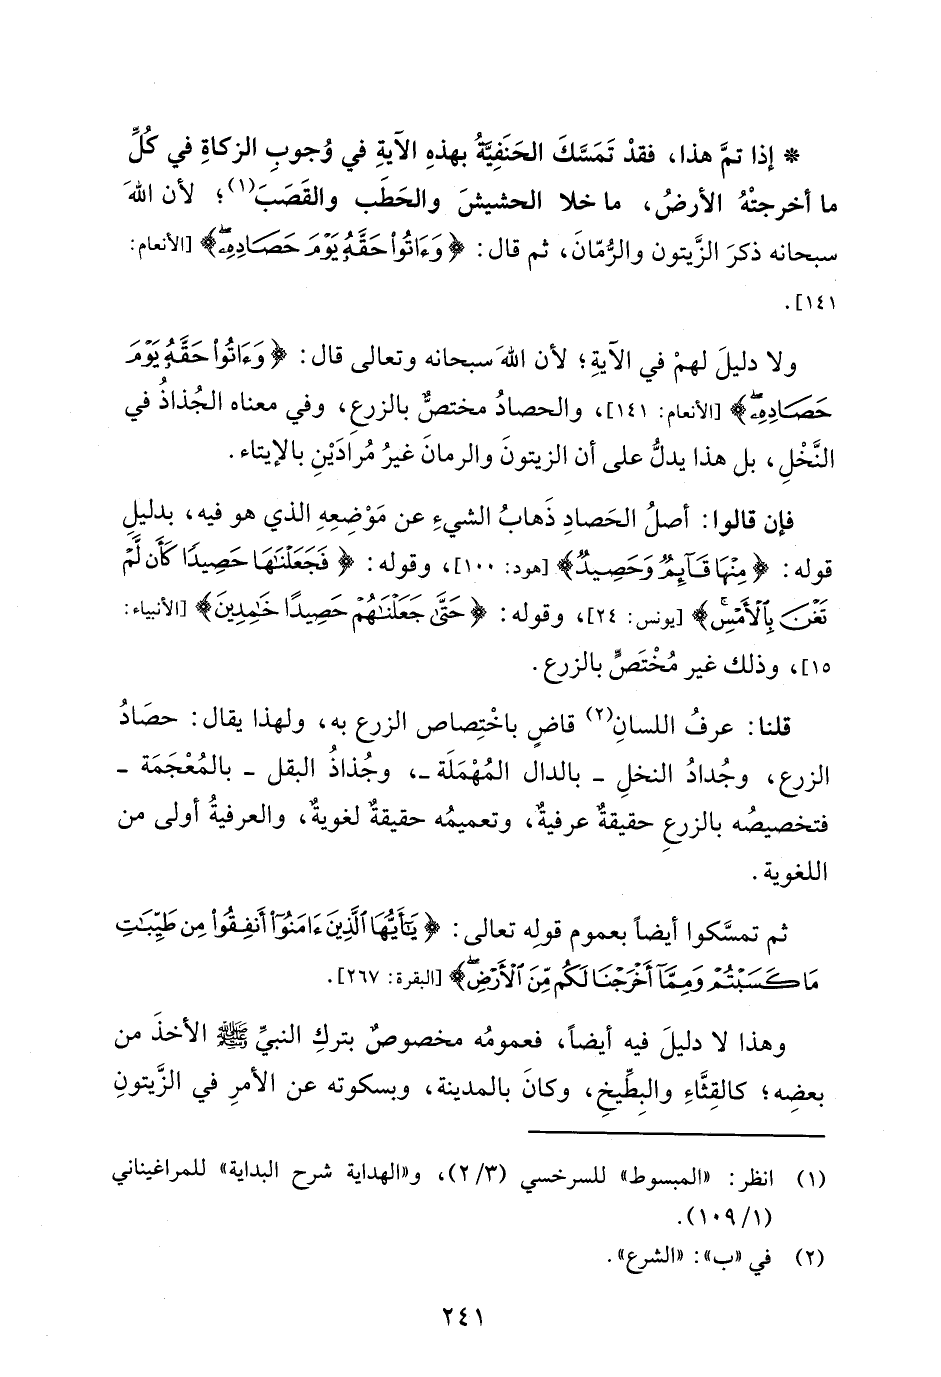 * إذا تمَّ هذا، فقدْ تَمَسَّكَ الحَنَفِيَّةُ بهذهِ الآيةِ في وُجوبِ الزكاةِ في كُلِّ
ما أخرجتْهُ الأرضُ، ما خلا الحشيشَ والحَطَب والقَصَبَ(١)؛ لأن اللهَ
سبحانه ذكرَ الزَّيتون والرُّمّانَ، ثم قال: ﴿وَءَاتُوا۟ حَقَّهُۥ يَوْمَ حَصَادِهِۦ ۖ﴾ [الأنعام:
١٤١].
ولا دليلَ لهمْ في الآيةِ؛ لأن اللهَ سبحانه وتعالى قال: ﴿وَءَاتُوا۟ حَقَّهُۥ يَوْمَ
حَصَادِهِۦ ۖ﴾ [الأنعام: ١٤١]، والحصادُ مختصٌّ بالزرعِ، وفي معناه الجُذاذُ في
النَّخْلِ، بل هذا يدلُّ على أن الزيتونَ والرمانَ غيرُ مُرادَيْنِ بالإيتاء.
فإن قالوا: أصلُ الحَصادِ ذَهابُ الشيءِ عن مَوْضِعِهِ الذي هو فيه، بدليلِ
قوله: ﴿مِنْهَا قَآئِمٌ وَحَصِيدٌ﴾ [هود: ١٠٠]، وقوله: ﴿فَجَعَلْنَٰهَا حَصِيدًا كَأَن لَّمْ
تَغْنَ بِٱلْأَمْسِ ۚ﴾ [يونس: ٢٤]، وقوله: ﴿حَتَّىٰ جَعَلْنَٰهُمْ حَصِيدًا خَٰمِدِينَ﴾ [الأنبياء:
١٥]، وذلك غير مُخْتَصٍّ بالزرع.
قلنا: عرفُ اللسانِ(٢) قاضٍ باخْتِصاص الزرع به، ولهذا يقال: حصَادُ
الزرع، وجُدادُ النخلِ - بالدال المُهْمَلَة -، وجُذاذُ البقل - بالمُعْجَمَة -
فتخصيصُه بالزرعِ حقيقةٌ عرفيةٌ، وتعميمُه حقيقةٌ لغويةٌ، والعرفيةُ أولى من
اللغوية.
ثم تمسَّكوا أيضاً بعموم قولِه تعالى: ﴿يَٰٓأَيُّهَا ٱلَّذِينَ ءَامَنُوٓا۟ أَنفِقُوا۟ مِن طَيِّبَٰتِ
مَا كَسَبْتُمْ وَمِمَّآ أَخْرَجْنَا لَكُم مِّنَ ٱلْأَرْضِ ۖ﴾ [البقرة: ٢٦٧].
وهذا لا دليلَ فيه أيضاً، فعمومُه مخصوصٌ بتركِ النبيِّ ﷺ الأخذَ من
بعضِه؛ كالقِثَّاءِ والبِطِّيخِ، وكانَ بالمدينة، وبسكوته عن الأمرِ في الزَّيتونِ
(١) انظر: «المبسوط» للسرخسي (٢/٣)، و«الهداية شرح البداية» للمراغيناني
(١٠٩/١).
(٢) في «ب»: «الشرع».
٢٤١